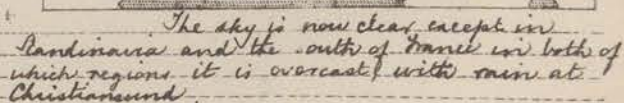 The sky is now clear except in
Scandinavia and the south of France in both of
which regions it is overcast, with rain at
Christiansund.